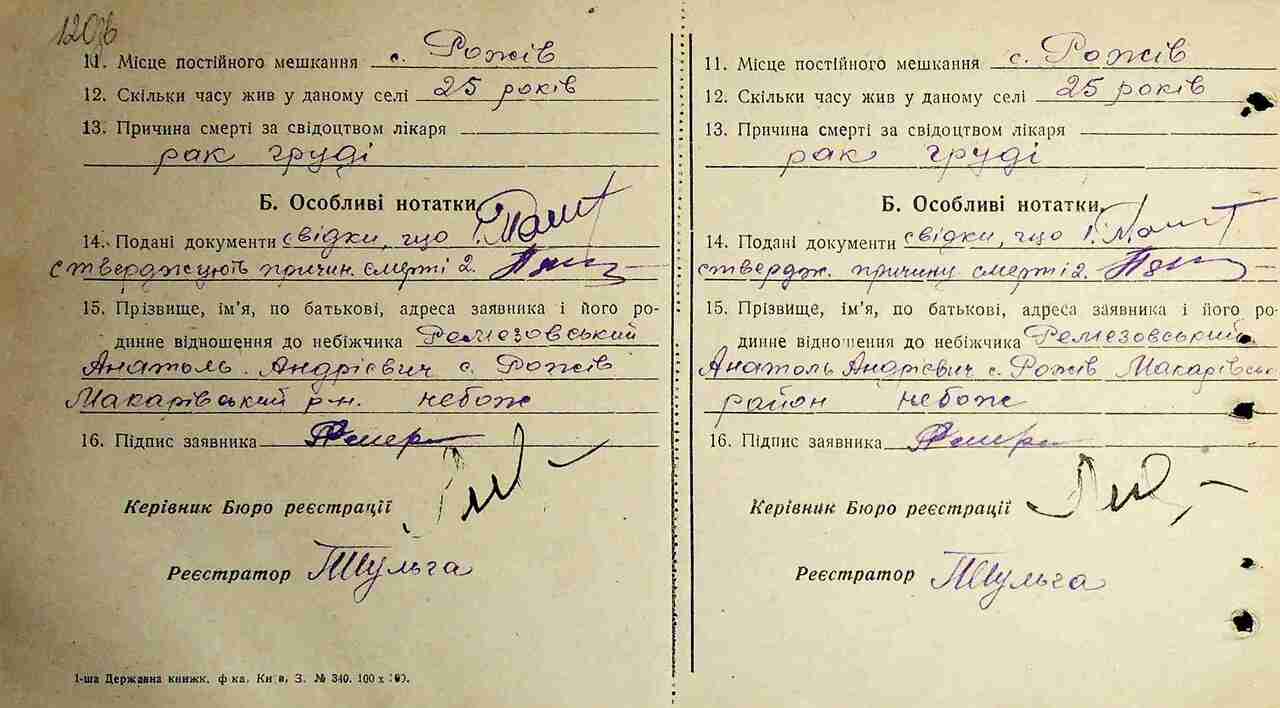 120зв
11. Місце постійного мешкання с. Рожів
12. Скільки часу жив у даному селі 25 років
13. Причина смерті за свідоцтвом лікаря
рак груді
Б. Особливі нотатки
14. Подані документи свідки, що 1.
стверджують причин. смерті 2.
15. Прізвище, ім'я, по батькові, адреса заявника і його ро-
динне відношення до небіжчика Ремезовський
Анатоль Андрієвич с. Рожів
Макарівський р-н. небож
16. Підпис заявника
Керівник Бюро реєстрації
Реєстратор Шульга
1-ша Державна книжк. ф-ка, Київ, З. № 340. 100 x
11. Місце постійного мешкання с. Рожів
12. Скільки часу жив у даному селі 25 років
13. Причина смерті за свідоцтвом лікаря
рак груді
Б. Особливі нотатки
14. Подані документи свідки, що 1.
ствердж. причину смерті 2.
15. Прізвище, ім'я, по батькові, адреса заявника і його ро-
динне відношення до небіжчика Ремезовський
Анатоль Андрієвич с. Рожів Макарівсь
район небож
16. Підпис заявника
Керівник Бюро реєстрації
Реєстратор Шульга